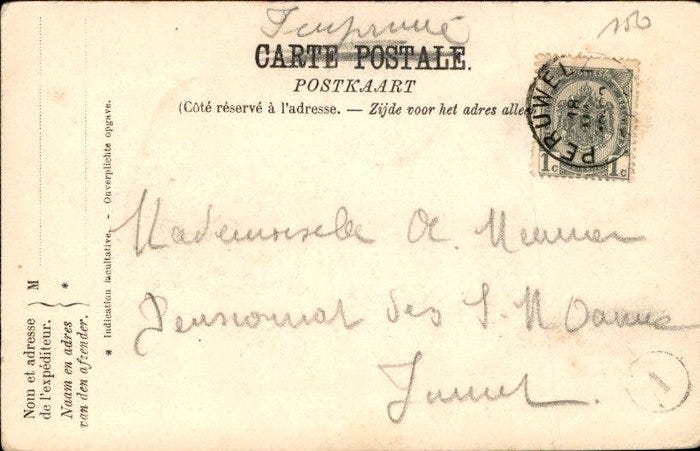 Imprimé
150
CARTE POSTALE.
POSTKAART
(Côté réservé à l'adresse. — Zijde voor het adres alleen
PERUWEL
18
1c 1c
POSTES
Mademoiselle A.
Pensionnat des S.
Jumet.
1
* Indication facultative. - Onverplichte opgave.
M
*
Nom et adresse
de l'expéditeur.
Naam en adres
van den afzender.